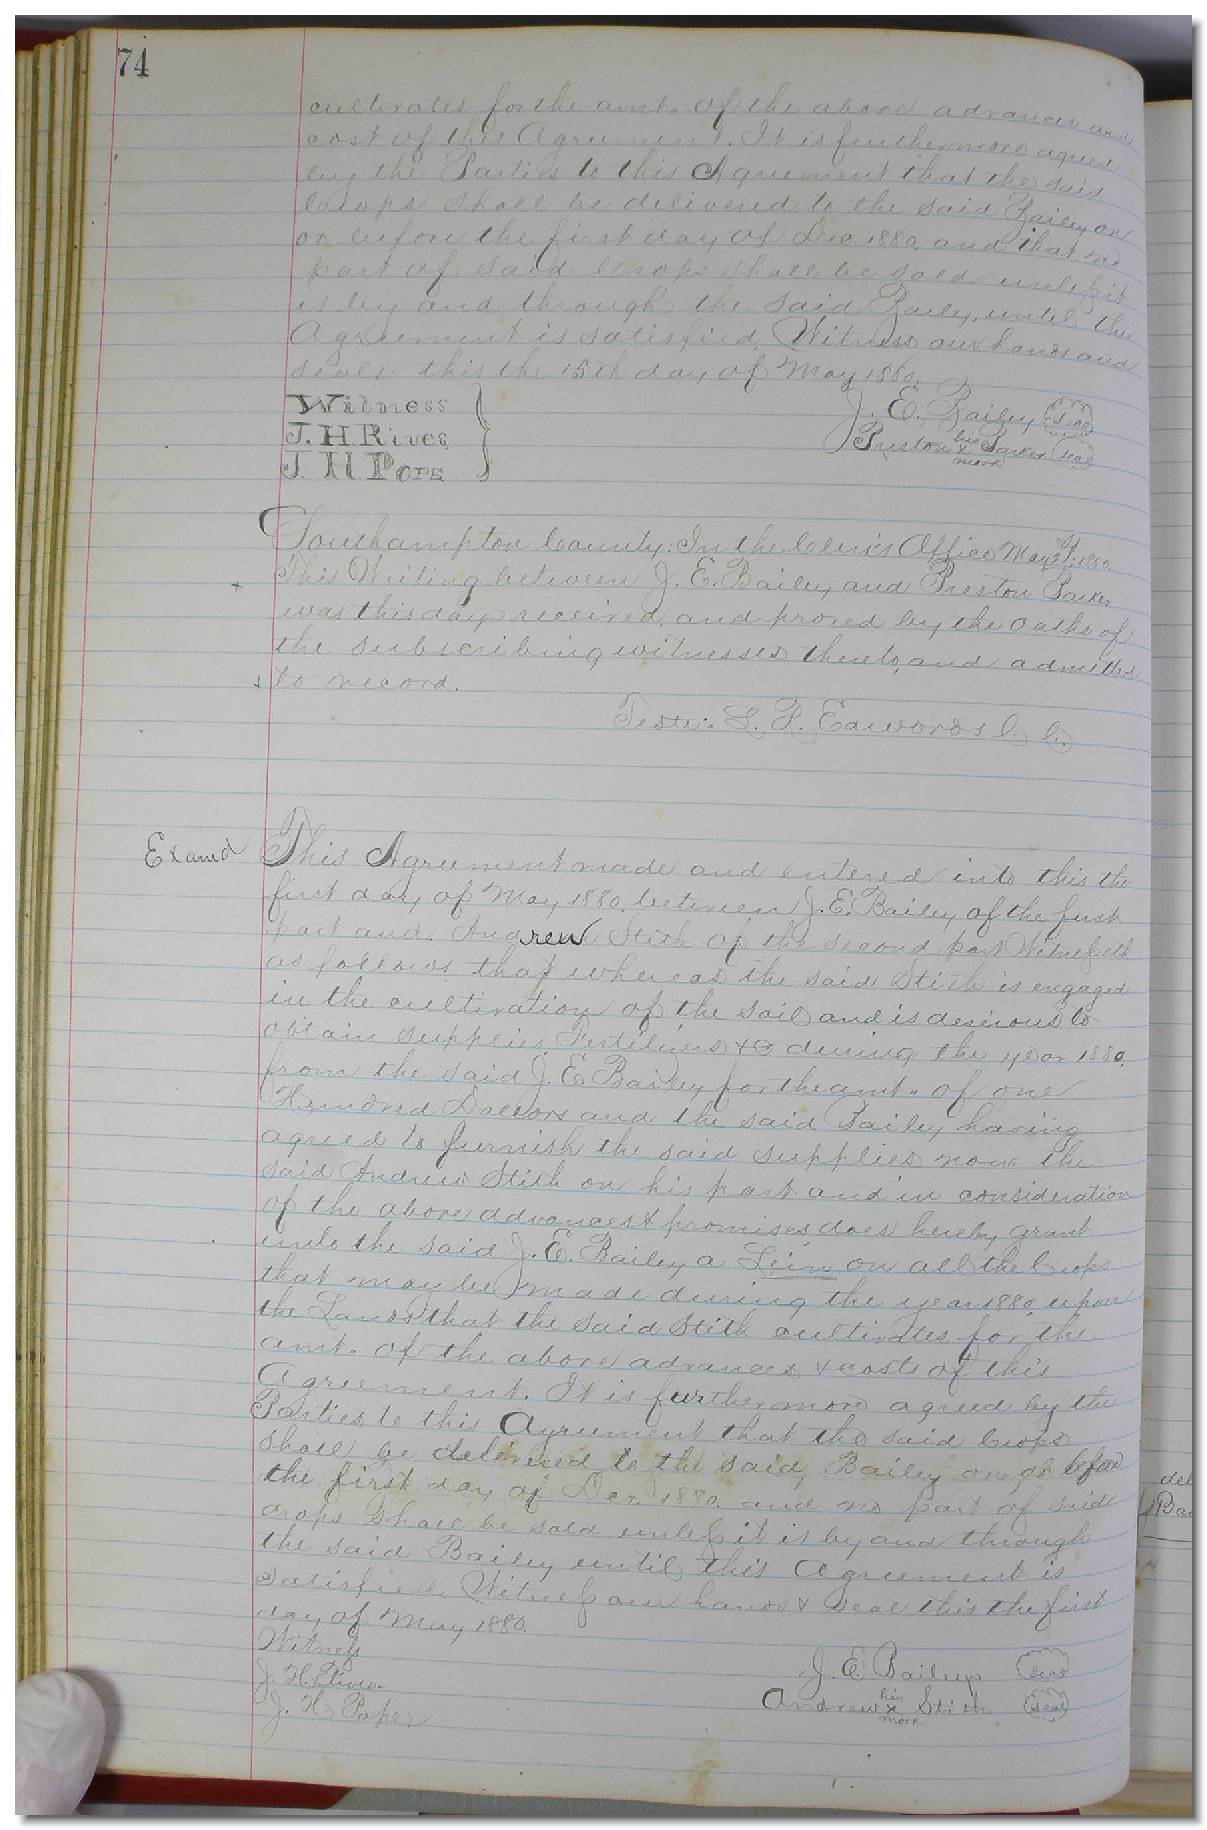 74
cultivates for the amt. of the above advances and
cost of this Agreement. It is furthermore agreed
by the Parties to this Agreement that the said
Crops shall be delivered to the said Bailey on
or before the first day of Dec. 1880. and that no
part of said Crops shall be sold unless it
is by and through the said Bailey, until this
Agreement is satisfied. Witness our hands and
seals this the 15th day of May 1880.
Witness J. E. Bailey seal
J. H. Rives Preston his x mark Parker seal
J. H. Pope
Southampton County: In the Clerk's Office May 21st, 1880.
This Writing between J. E. Bailey and Preston Parker
was this day received, and proved by the oaths of
the subscribing witnesses thereto, and admitted
to record.
Teste: L. R. Edwards C. C.
Examd This Agreement made and entered into this the
first day of May 1880. between J. E. Bailey of the first
part and Andrew Stith of the second part Witnesseth
as follows that whereas the said Stith is engaged
in the cultivation of the soil and is desirous to
obtain supplies, Fertilizers &c during the year 1880.
from the said J. E. Bailey for the amt. of one
Hundred Dollars and the said Bailey having
agreed to furnish the said supplies now the
said Andrew Stith on his part and in consideration
of the above advances & promises does hereby grant
unto the said J. E. Bailey a Lein on all the Crops
that may be made during the year 1880. upon
the Lands that the said Stith cultivates for the
amt. of the above advances & costs of this
Agreement. It is furthermore agreed by the
Parties to this Agreement that the said Crops
shall be delivered to the said Bailey on or before
the first day of Dec. 1880. and no part of said
crops shall be sold unless it is by and through
the said Bailey until this Agreement is
satisfied. Witness our hands & seal this the first
day of May 1880.
Witness J. E. Bailey seal
J. H. Rives. Andrew his x mark Stith seal
J. H. Pope.
del
Bai